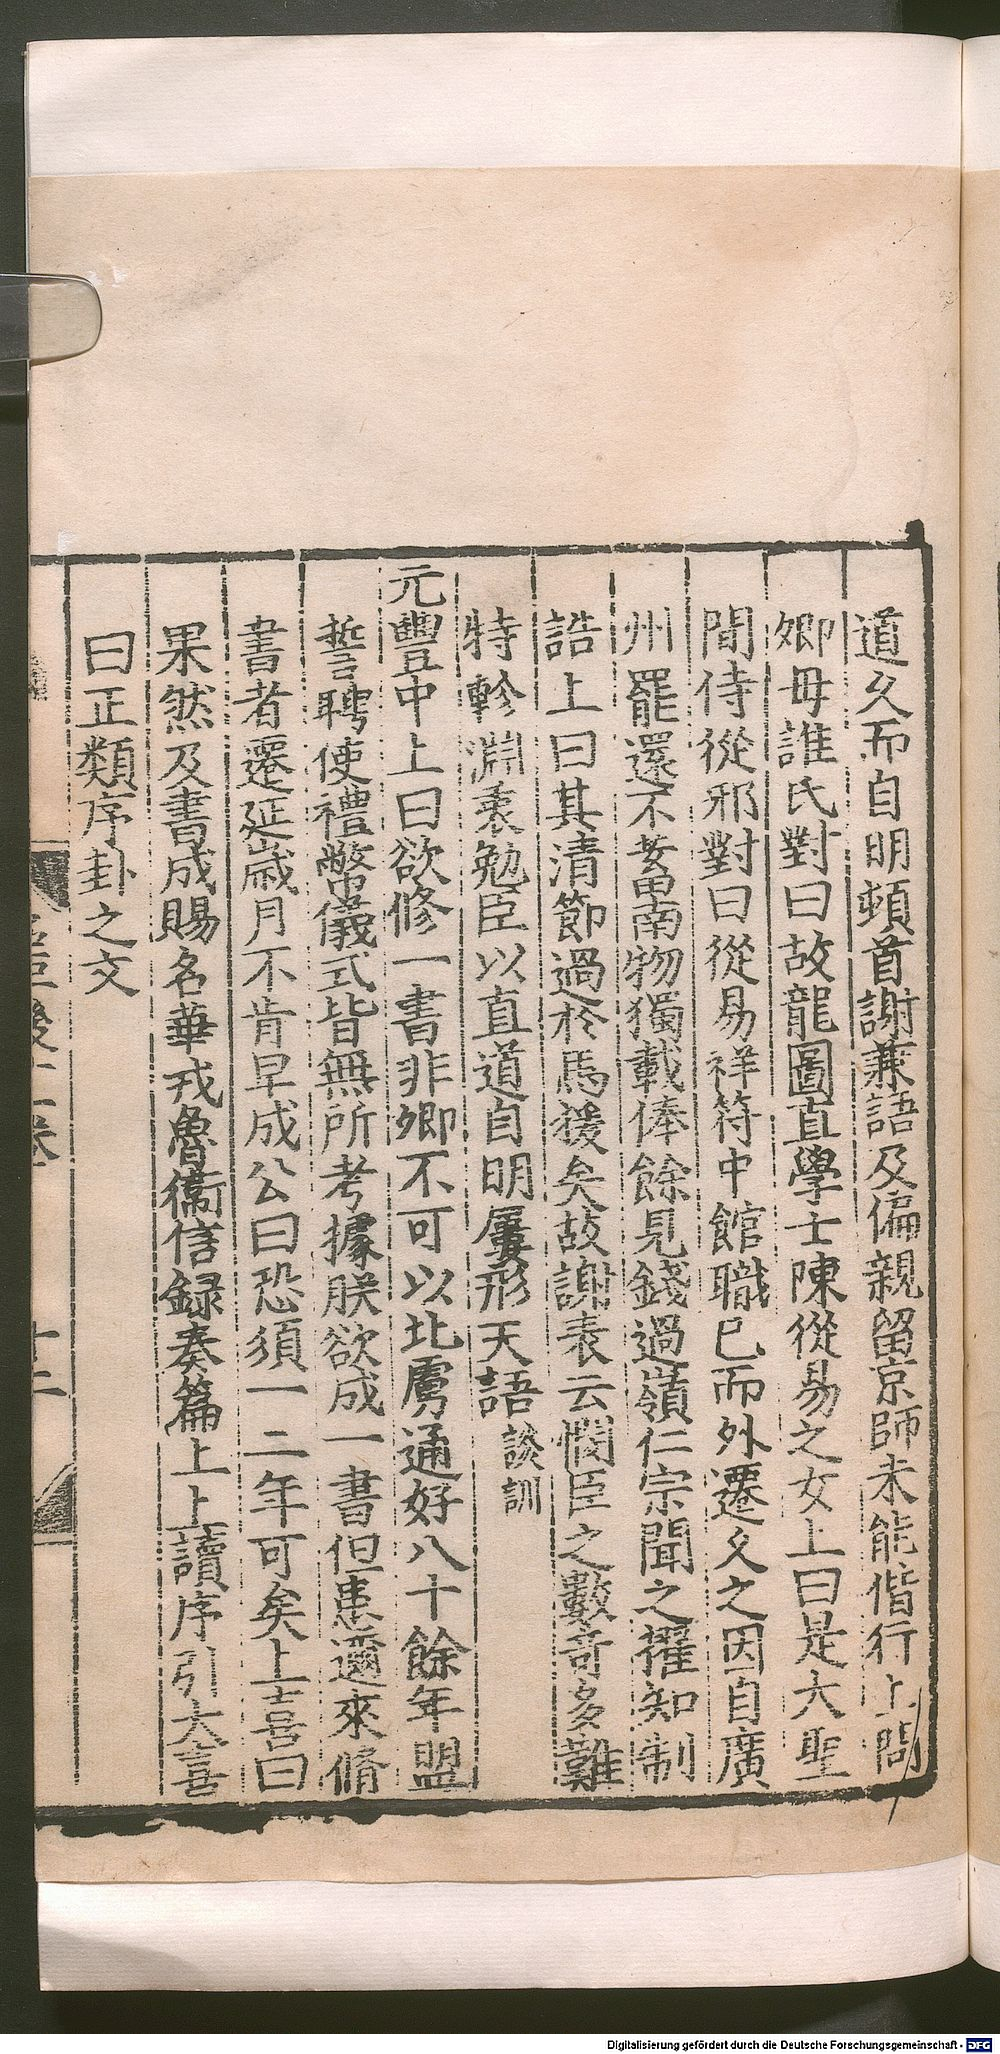 道久而自明頓首謝兼語及偏親留京師未能偕行上問
卿毋誰氏對曰故龍圖直學士陳從易之女上曰是大聖
間侍從邪對曰從易祥符中館職已而外遷久之因自廣
州罷還不蓄南物獨載俸餘見錢過嶺仁宗聞之擢知制
誥上曰其清節過於馬援矣故謝表云憫臣之數奇多難
特軫淵衷勉臣以直道自明屢形天語談訓
元豐中上曰欲修一書非卿不可以北虜通好八十餘年盟
誓聘使禮幣儀式皆無所考據朕欲成一書但患邇來脩
書者遷延歲月不肯早成公曰恐須一二年可矣上喜曰
果然及書成賜名華戎魯衞信録奏篇上上讀序引大喜
曰正類序卦之文
名臣後十一卷
十二
Digitalisierung gefördert durch die Deutsche Forschungsgemeinschaft - DFG